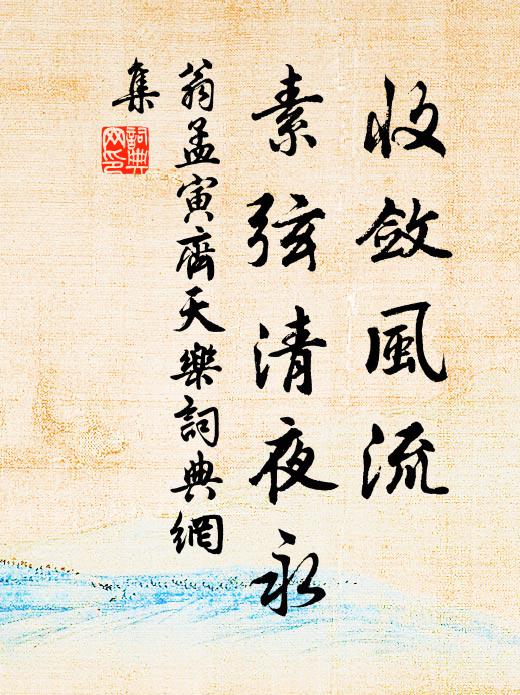 收斂風流
素弦清夜永
翁孟寅齊天樂詞典網
集
詞典
网印